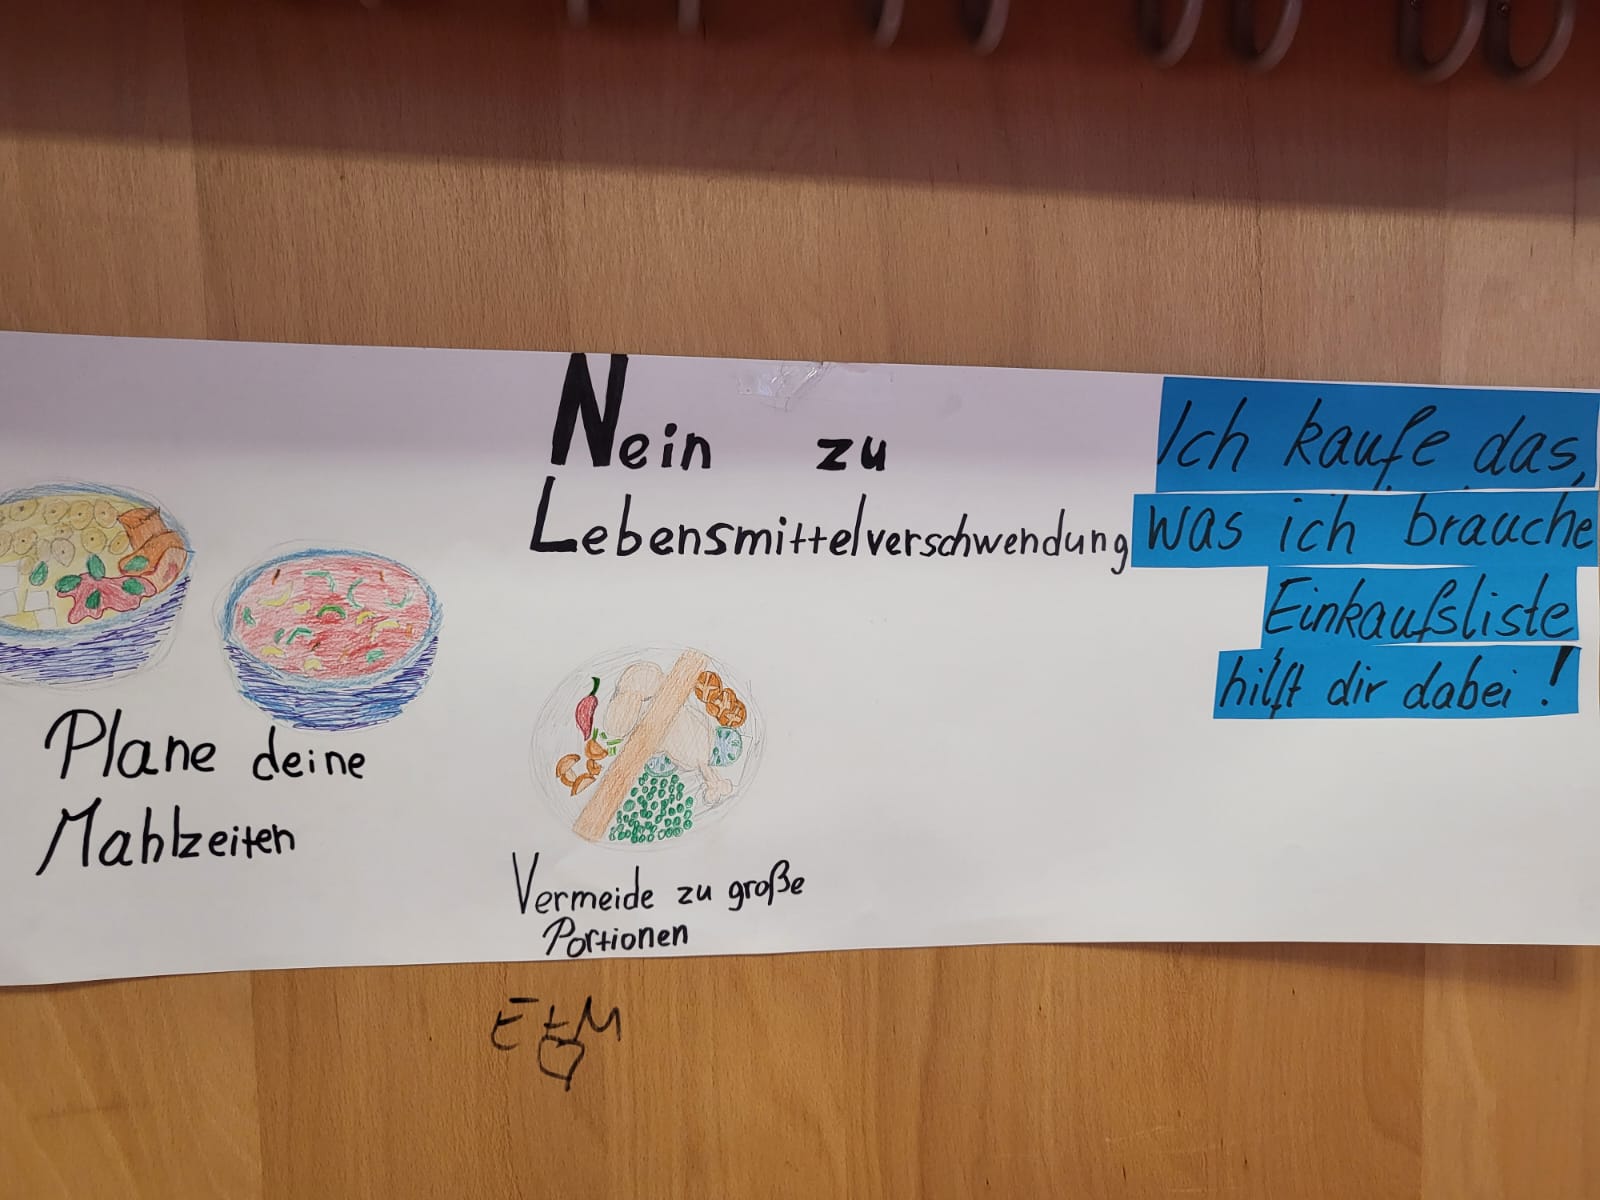 Nein zu
Lebensmittelverschwendung
Ich kaufe das,
was ich brauche
Einkaufsliste
hilft dir dabei!
Plane deine
Mahlzeiten
Vermeide zu große
Portionen
E + M